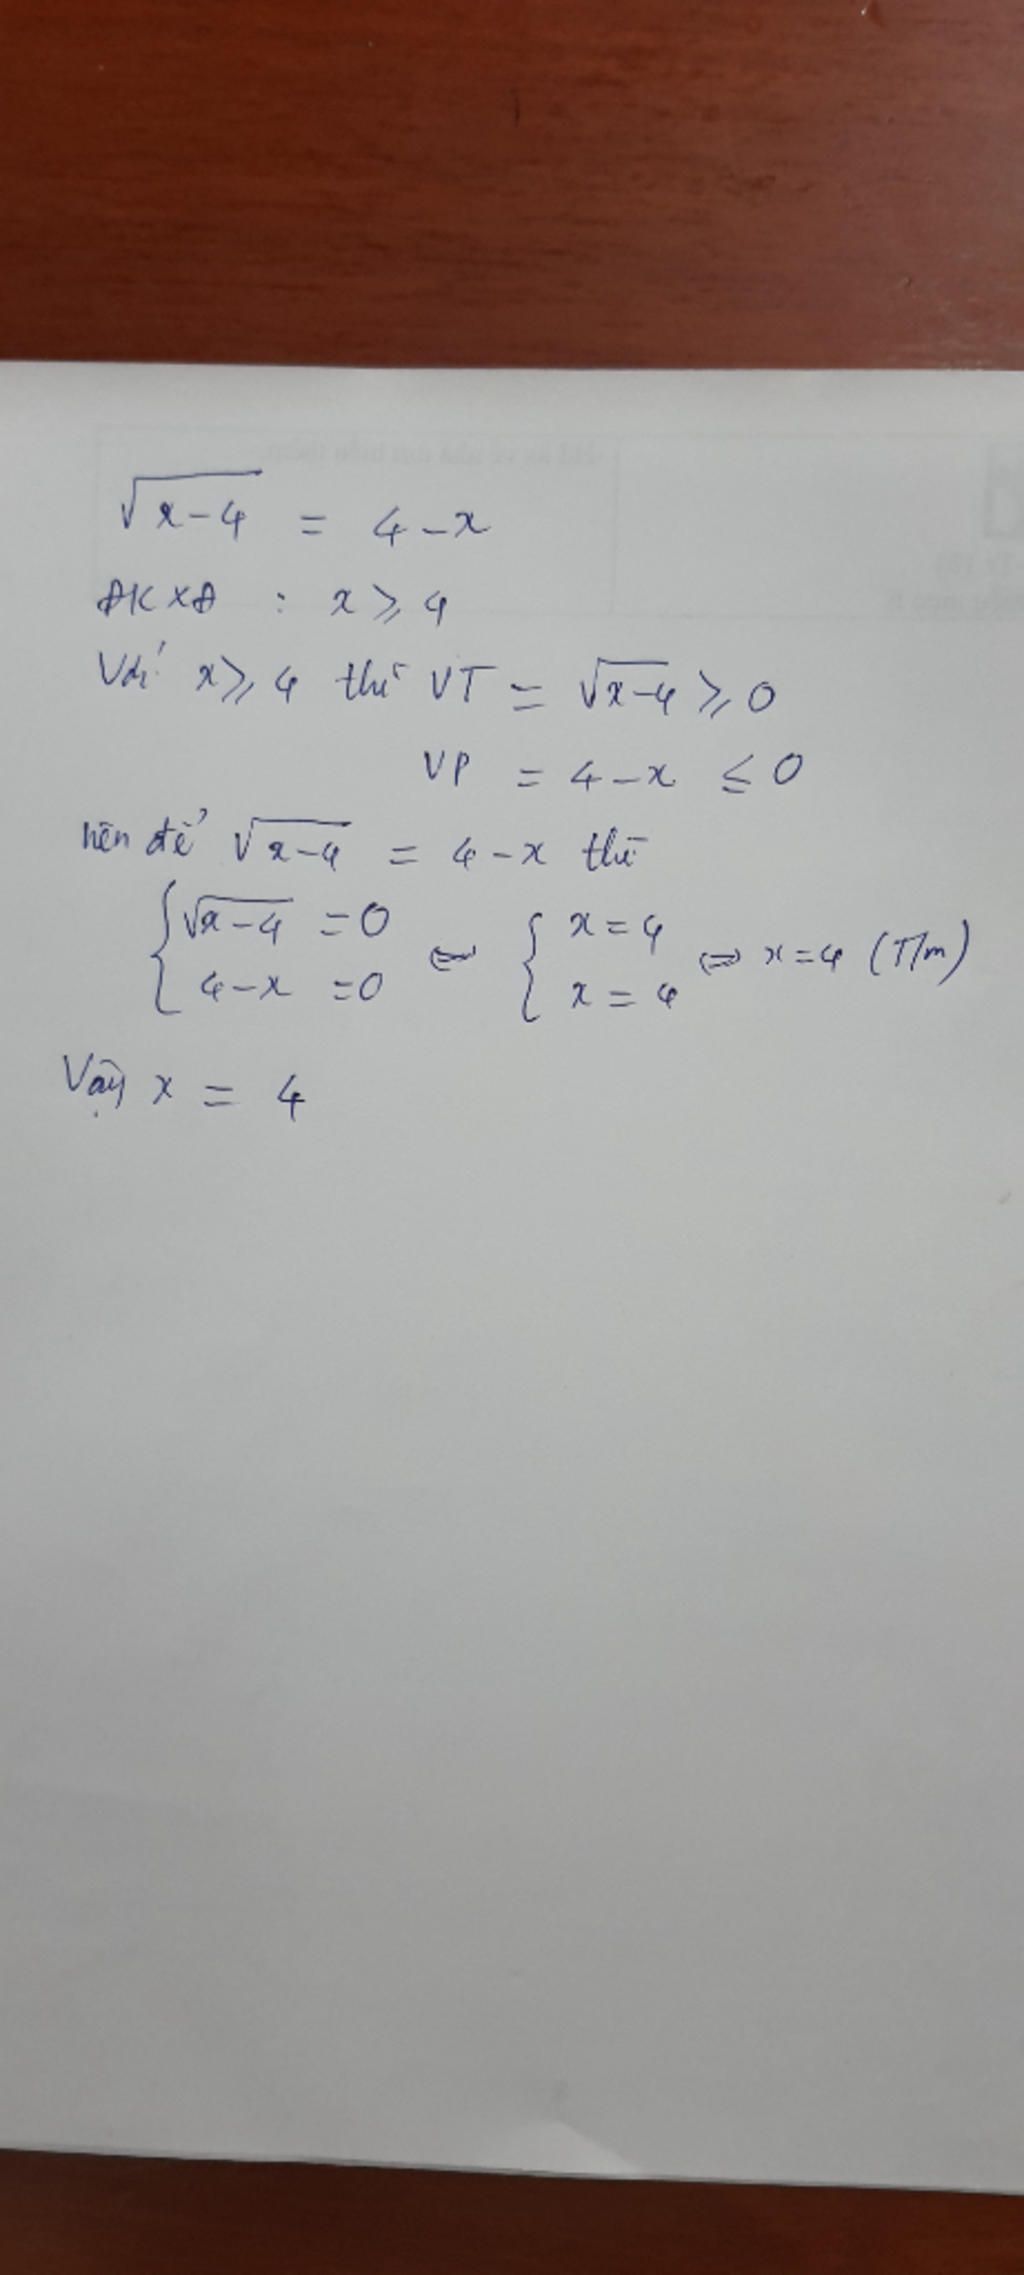 √(x-4) = 4-x
ĐKXĐ : x ⩾ 4
Với x ⩾ 4 thì VT = √(x-4) ⩾ 0
VP = 4-x ≤ 0
nên để √(x-4) = 4-x thì
{ √(x-4) = 0 ⇔ { x = 4 ⇔ x = 4 (T/m)
4-x = 0 x = 4
Vậy x = 4